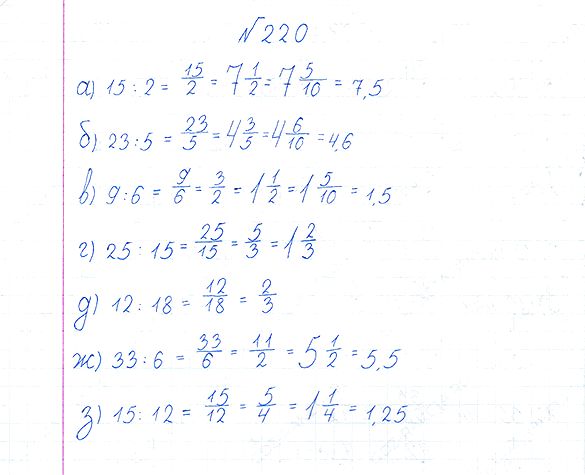 №220
а) 15 : 2 = 15/2 = 7 1/2 = 7 5/10 = 7,5
б) 23 : 5 = 23/5 = 4 3/5 = 4 6/10 = 4,6
в) 9 : 6 = 9/6 = 3/2 = 1 1/2 = 1 5/10 = 1,5
г) 25 : 15 = 25/15 = 5/3 = 1 2/3
д) 12 : 18 = 12/18 = 2/3
ж) 33 : 6 = 33/6 = 11/2 = 5 1/2 = 5,5
з) 15 : 12 = 15/12 = 5/4 = 1 1/4 = 1,25